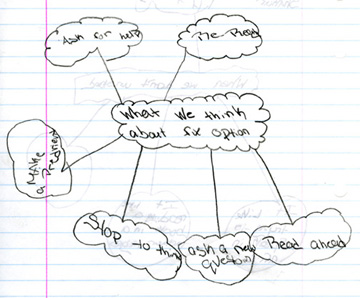 Ask for help
Re-Read
What we think
about six option
Make
a Predment
Stop to think
ask a new
question
Read ahead